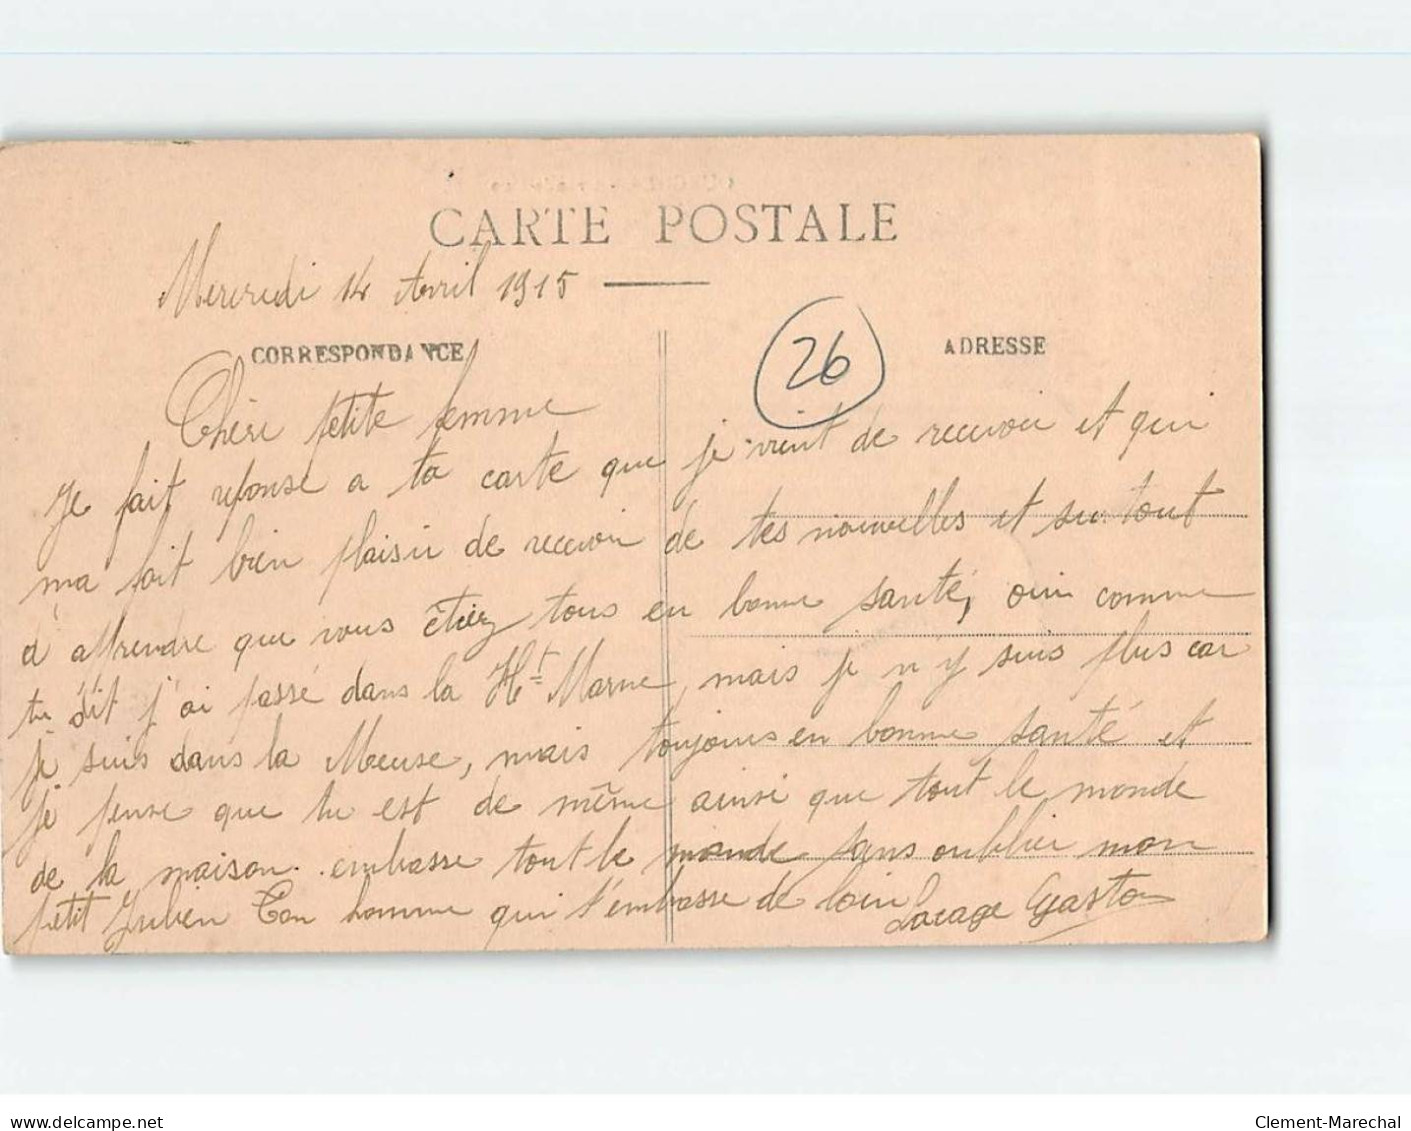 CARTE POSTALE
Mercredi 14 Avril 1915
CORRESPONDANCE
26
ADRESSE
Chère petite femme
Je fait reponse a ta carte que je vient de recevoir et qui
ma fait bien plaisir de recevoir de tes nouvelles et surtout
d'attrendre que vous êtiez tous en bonne santé, oui comme
tu dit j'ai passé dans la Ht Marne, mais je n'y suis plus car
je suis dans la Meuse, mais toujours en bonne santé et
je pense que tu est de même ainsi que tout le monde
de la maison. embasse tout le monde sans oublier mon
petit Julien Ton homme qui t'embasse de loin Lacage Gaston
delcampe.net
Clement-Marechal